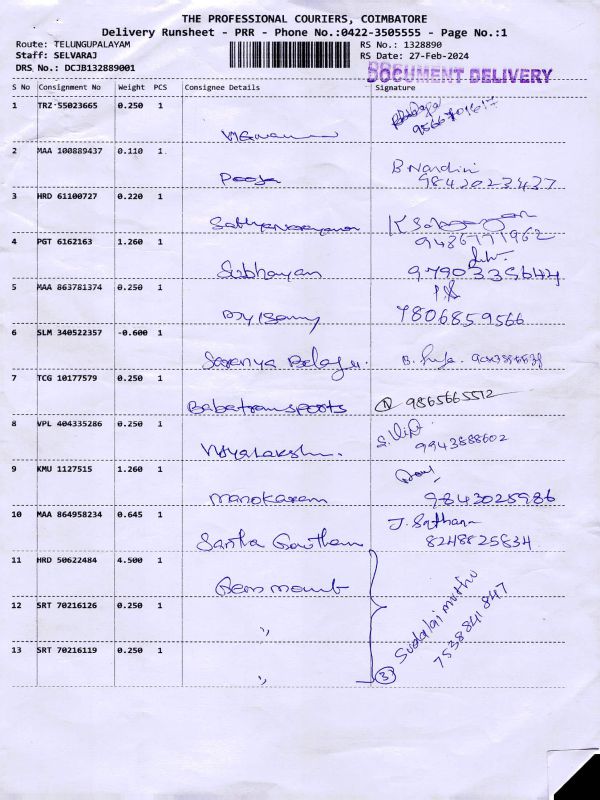 THE PROFESSIONAL COURIERS, COIMBATORE
Delivery Runsheet - PRR - Phone No.:0422-3505555 - Page No.:1
Route: TELUNGUPALAYAM
Staff: SELVARAJ
DRS No.: DCJB132889001
RS No.: 1328890
RS Date: 27-Feb-2024
DOCUMENT DELIVERY
S No Consignment No Weight PCS Consignee Details Signature
1 TRZ 55023665 0.250 1
2 MAA 100889437 0.110 1 Pooja B Nandini
9842023437
3 HRD 61100727 0.220 1 Sathyanarayanan
9486771962
4 PGT 6162163 1.260 1 Subhayan 9790335644
5 MAA 863781374 0.250 1 7806859566
6 SLM 340522357 -0.600 1 Saranya
7 TCG 10177579 0.250 1 Babatransports 9865665512
8 VPL 404335286 0.250 1 9943588602
9 KMU 1127515 1.260 1 Manokaram 9843025986
10 MAA 864958234 0.645 1 Santha Goutham J. Sathana
8248825834
11 HRD 50622484 4.500 1
12 SRT 70216126 0.250 1 "
13 SRT 70216119 0.250 1 "
Sudalai muthu
7538841847
3